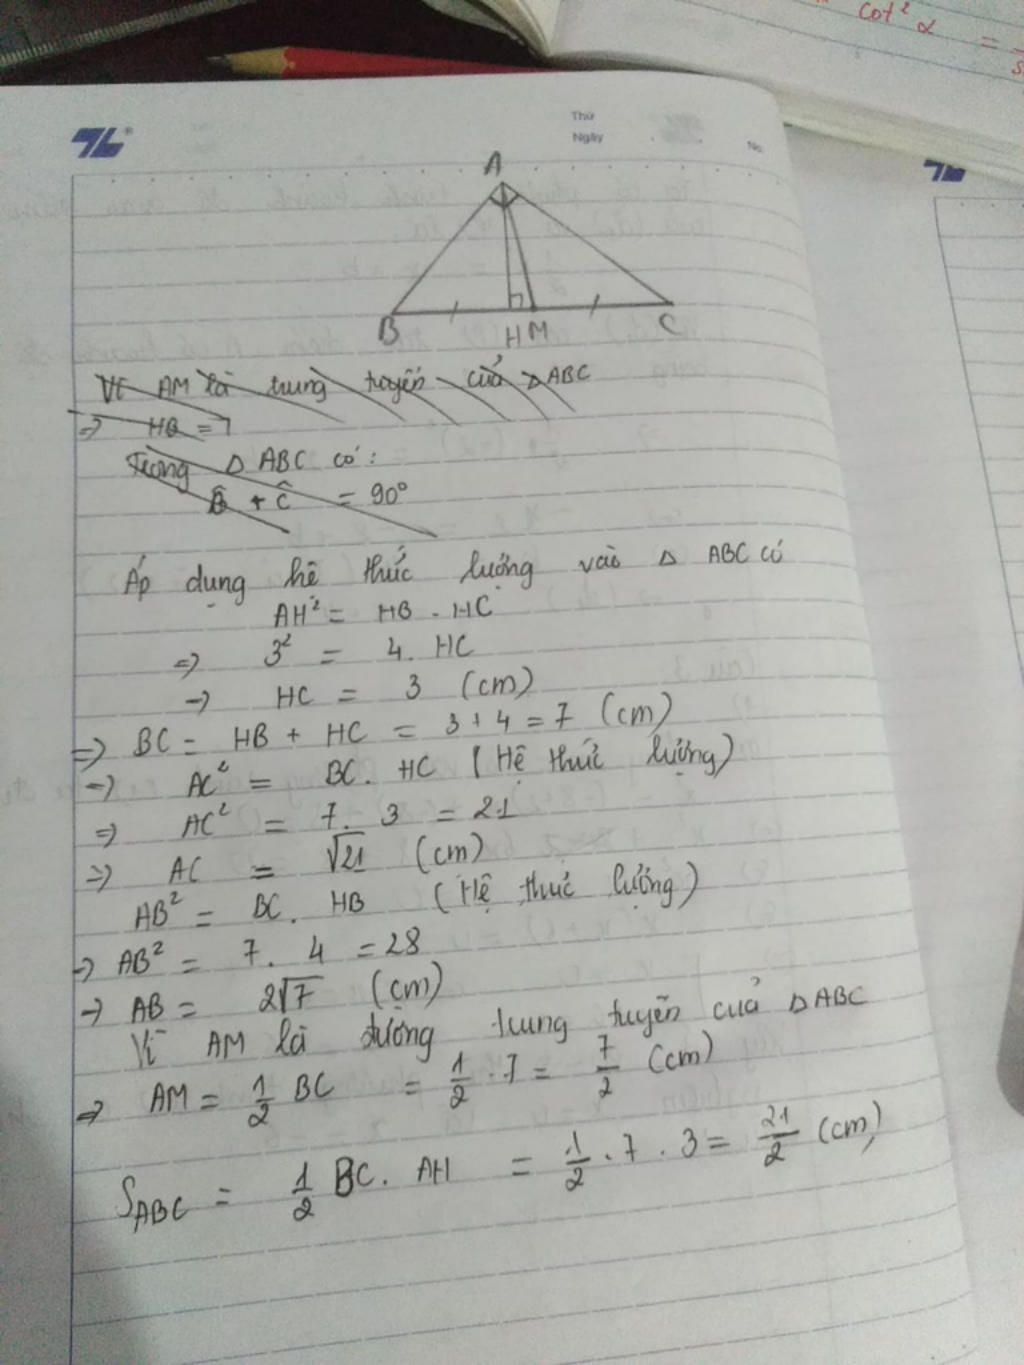 cot² α =
Thứ
Ngày
No.
A
B H M C
Vì AM là trung tuyến của △ABC
=> HB = 7
Trong △ ABC có:
B̂ + Ĉ = 90°
Áp dụng hệ thức lượng vào △ ABC có
AH² = HB . HC
=> 3² = 4. HC
=> HC = 3 (cm)
=> BC = HB + HC = 3 + 4 = 7 (cm)
=> AC² = BC. HC (Hệ thức lượng)
=> AC² = 7. 3 = 21
=> AC = √21 (cm)
AB² = BC. HB (Hệ thức lượng)
=> AB² = 7. 4 = 28
=> AB = 2√7 (cm)
Vì AM là đường trung tuyến của △ABC
=> AM = 1/2 BC = 1/2 . 7 = 7/2 (cm)
S_ABC = 1/2 BC. AH = 1/2 . 7 . 3 = 21/2 (cm)